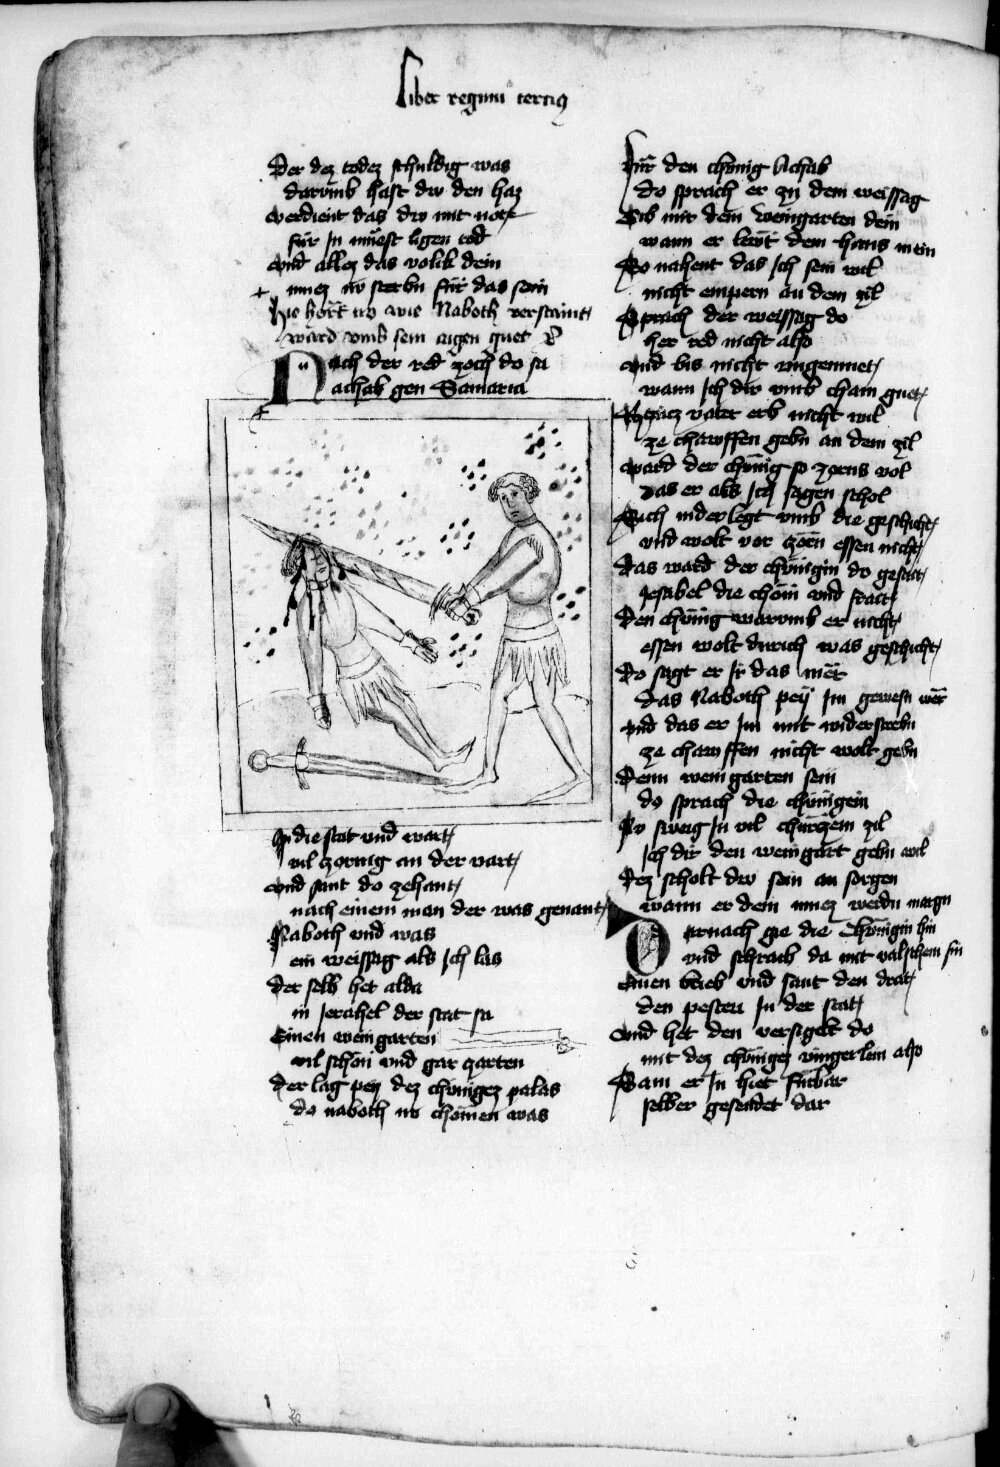 Liber regum tercius
Der dez todez schuldig was
darumb hast dw den haz
verdient das dw mit not
für in müest ligen tod
vnd allez das volik dein
muez nv sterbn für das sein
Hie hört nv wie Naboth verstaint
ward vmb sein aigen guet
Nach der red zoch do sa
achab gen Samaria
In die stat vnd wart
vil zornig an der vart
vnd sant do zehant
nach einem man der was genant
Naboth vnd was
ein weissag als ich las
der selb het alda
in Jerahel der stat sa
Einen weingarten
vil schön vnd gar zarten
der lag pey dez chünigez palas
do naboth nv chomen was
Für den chünig Achab
do sprach er zu dem weissag
Gib mir dem weingarten dein
wann er leut dem haus mein
So nahent das ich sein wil
nicht empern an dem zil
Sprach der weissag do
her red nicht also
vnd bis nicht vngemuet
wann ich dir vmb cham guet
Meinez vater erb nicht wil
ze chawffen gebn an dem zil
ward der chünig so zorns vol
das er als ich sagen schol
Sich nider legt vmb die geschicht
vnd wolt vor zorn essen nicht
das ward der chünigin do gesait
Jesabel die chom vnd frait
Den chünig warumb er nicht
essen wolt durich was geschicht
do sagt er ir das mer
das Naboth pey im gewesn wer
vnd das er im mit widerstrebn
ze chawffen nicht wolt gebn
Denn weingarten sein
do sprach die chünigein
Nv sweig in vil churczem zil
ich dir den weingart gebn wil
dez scholt dw sein an sorgen
wann er dem muez werdn margn
Darnach gie die chünigin hin
vnd schraib da mit valschem sin
Einen brieb vnd sant den drat
den pesten in der stat
vnd het den versigelt do
mit dez chünigez vingerlein also
Sam er in hiet fürbar
selber gesendet dar